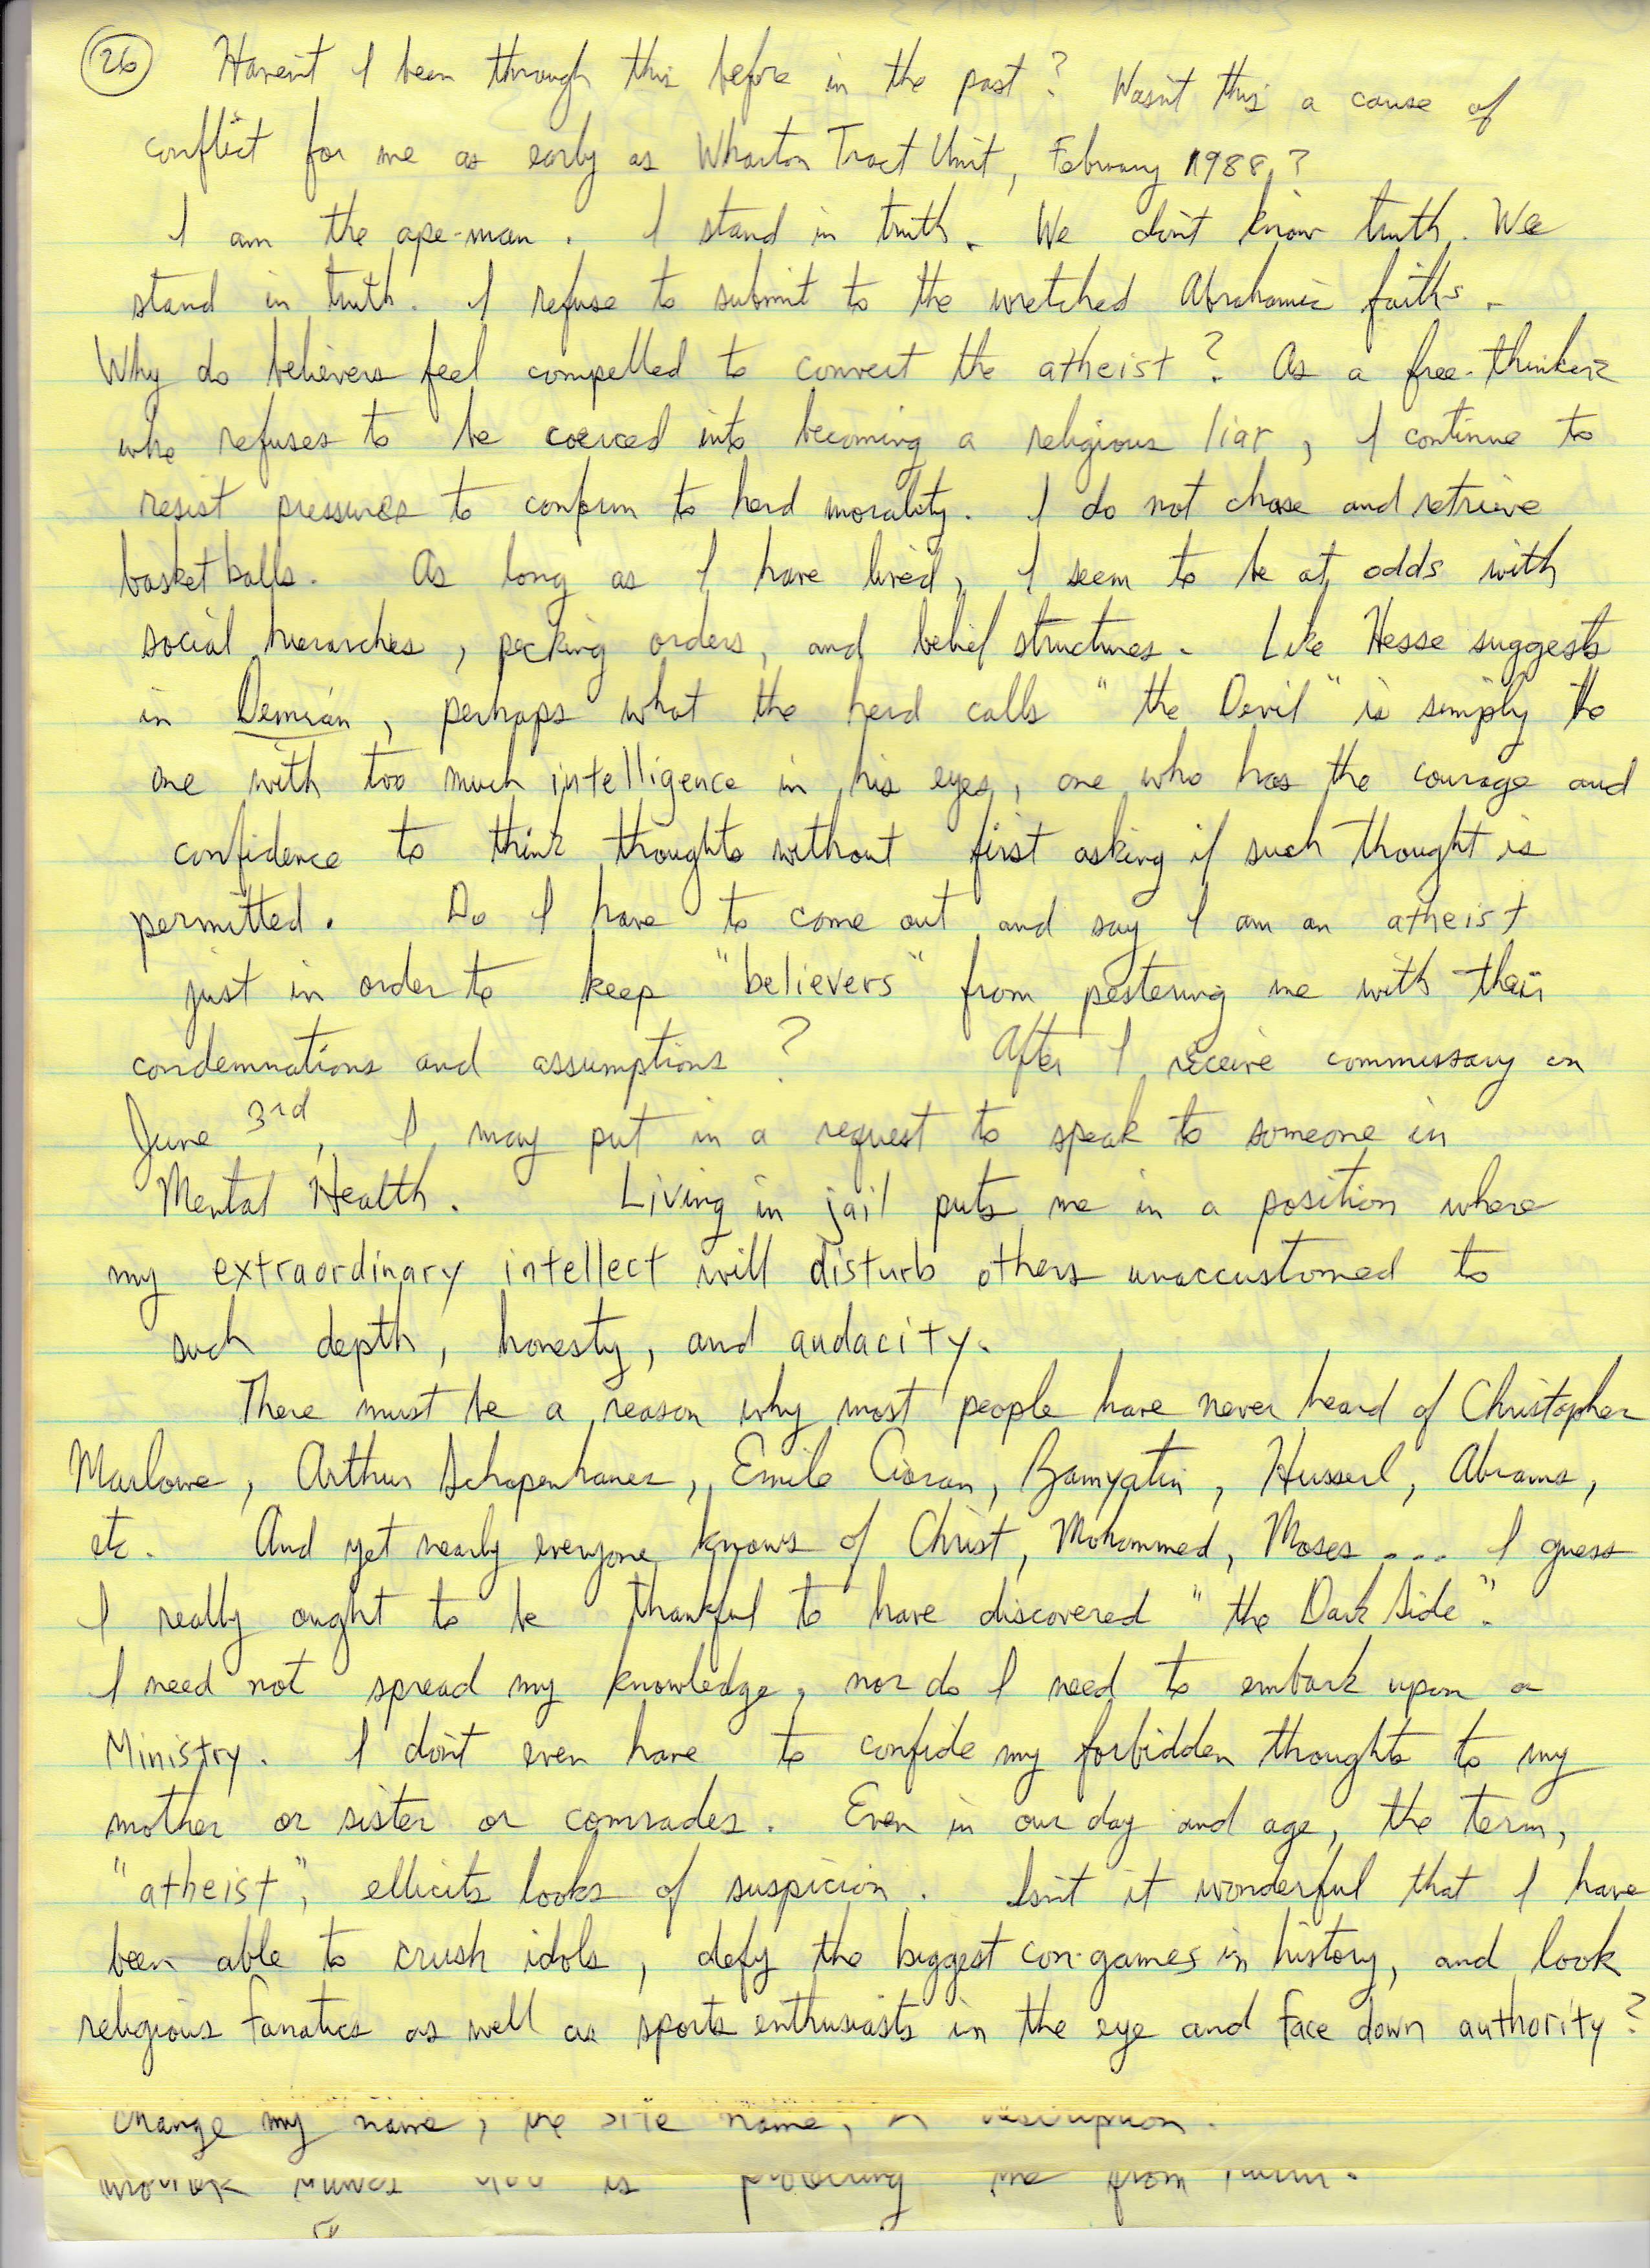 26 Haven't I been through this before in the past? Wasn't this a cause of
conflict for me as early as Wharton Tract Unit, February 1988?
I am the ape-man. I stand in truth. We don't know truth. We
stand in truth. I refuse to submit to the wretched Abrahamic faiths.
Why do believers feel compelled to convert the atheist? As a free-thinker
who refuses to be coerced into becoming a religious liar, I continue to
resist pressures to conform to herd morality. I do not chase and retrieve
basketballs. As long as I have lived, I seem to be at odds with
social hierarchies, pecking orders, and belief structures. Like Hesse suggests
in Demian, perhaps what the herd calls "the Devil" is simply the
one with too much intelligence in his eyes, one who has the courage and
confidence to think thoughts without first asking if such thought is
permitted. Do I have to come out and say I am an atheist
just in order to keep "believers" from pestering me with their
condemnations and assumptions? After I receive commissary on
June 3rd, I may put in a request to speak to someone in
Mental Health. Living in jail puts me in a position where
my extraordinary intellect will disturb others unaccustomed to
such depth, honesty, and audacity.
There must be a reason why most people have never heard of Christopher
Marlowe, Arthur Schopenhauer, Emile Cioran, Zamyatin, Husserl, Abrams,
etc. And yet nearly everyone knows of Christ, Mohammed, Moses... I guess
I really ought to be thankful to have discovered "the Dark Side".
I need not spread my knowledge, nor do I need to embark upon a
Ministry. I don't even have to confide my forbidden thoughts to my
mother or sister or comrades. Even in our day and age, the term,
"atheist", ellicits looks of suspicion. Isn't it wonderful that I have
been able to crush idols, defy the biggest con-games in history, and look
religious fanatics as well as sports enthusiasts in the eye and face down authority?
change my name, the site name, description.
is me from